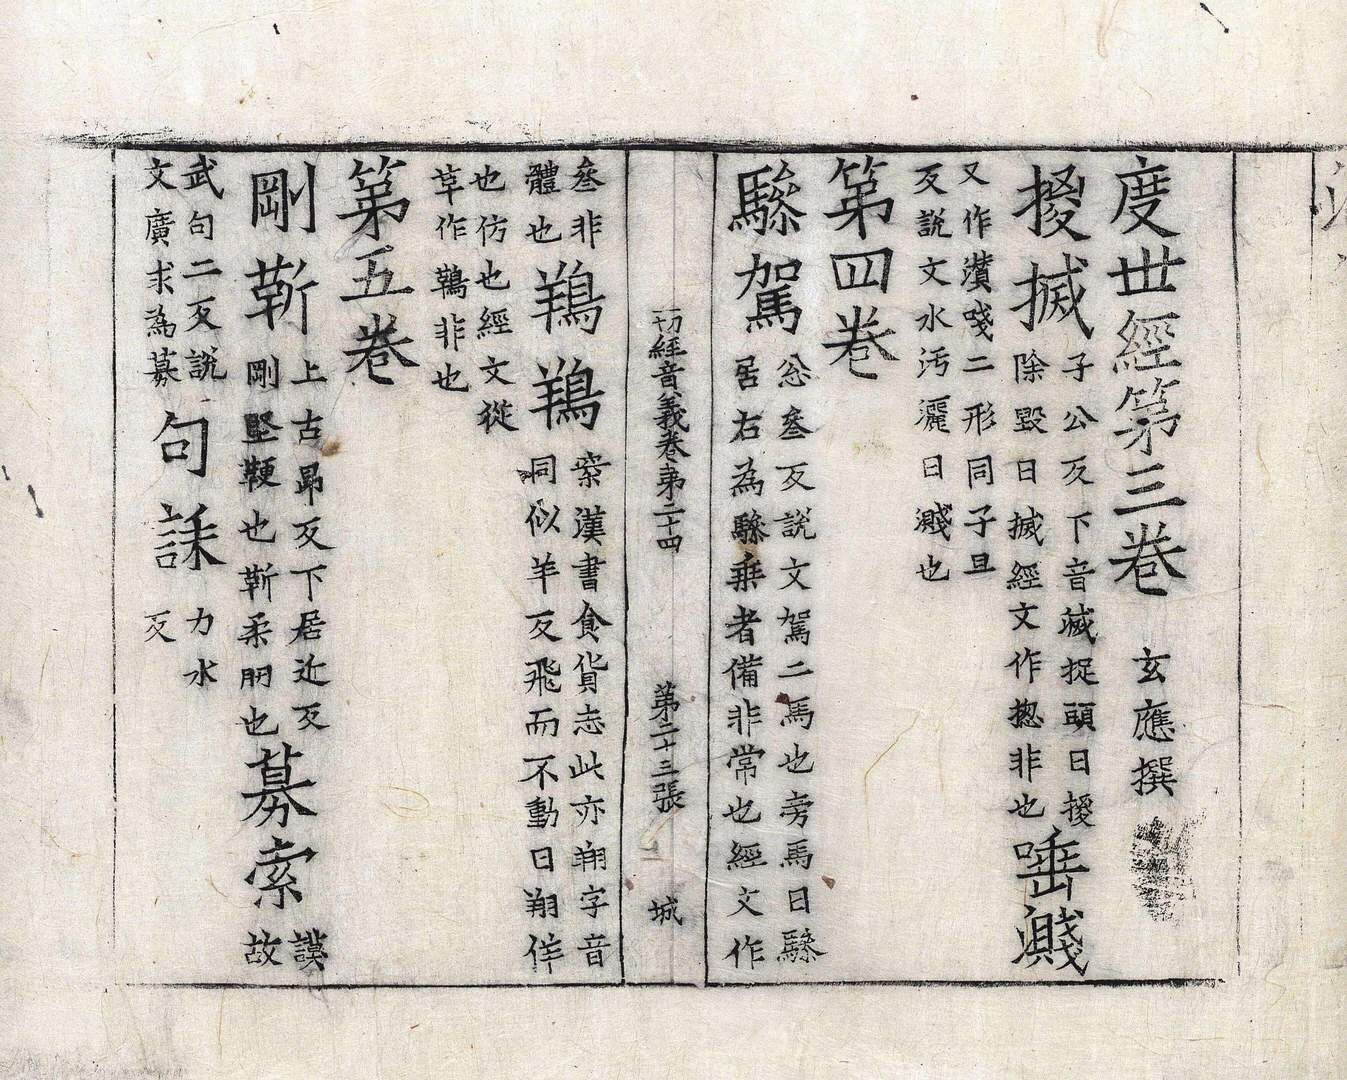 度世經第三卷 玄應撰
㨑搣 子公反下音滅捉頭曰㨑
除毀曰搣經文作揔非也 唾濺
又作灒㳻二形同子旦
反說文水汚灑曰濺也
第四卷
驂駕 忩叄反說文駕二馬也旁馬曰驂
居右為驂乗者備非常也經文作
一切經音義卷苐二十四 第二十三張 城
叄非
體也 鴹鴹 案漢書食貨志此亦翔字音
同似羊反飛而不動曰翔佯
也仿也經文從
草作鷊非也
第五卷
剛靳 上古昂反下居近反
剛堅鞕也靳柔肕也 募索 謨
故
武句二反說
文廣求為募 句誄 力水
反